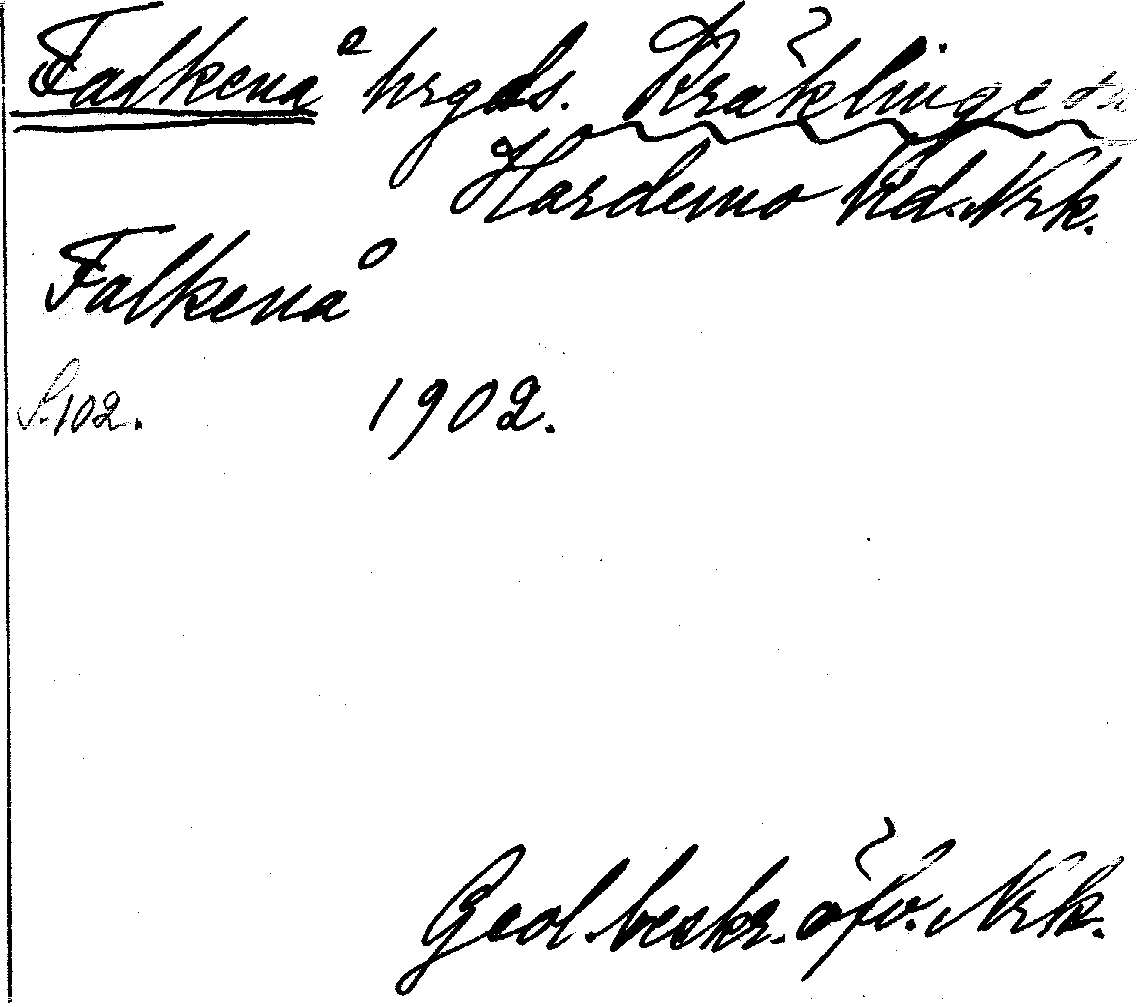 Falkenå hrgds. Kräklinge sn
Hardemo hd. Nrk.
Falkenå
S. 102. 1902.
Geol. beskr. öfv. Nrk.